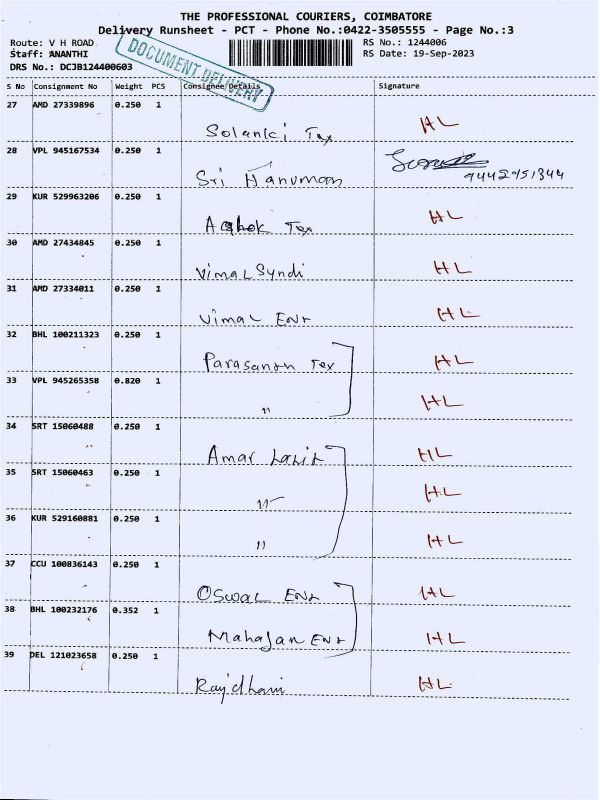 THE PROFESSIONAL COURIERS, COIMBATORE
Delivery Runsheet - PCT - Phone No.:0422-3505555 - Page No.:3
Route: V H ROAD RS No.: 1244006
Staff: ANANTHI RS Date: 19-Sep-2023
DRS No.: DCJB124400603
DOCUMENT DELIVERY
S No Consignment No Weight PCS Consignee Details Signature
27 AMD 27339896 0.250 1
Solanki Tex HL
28 VPL 945167534 0.250 1
Sri Hanuman 9442951344
29 KUR 529963206 0.250 1
Ashok Tex HL
30 AMD 27434845 0.250 1
Vimal Syndi HL
31 AMD 27334011 0.250 1
Vimal Ent HL
32 BHL 100211323 0.250 1
Parasanth Tex HL
33 VPL 945265358 0.820 1
" HL
34 SRT 15060488 0.250 1
Amar HL
35 SRT 15060463 0.250 1
" HL
36 KUR 529160881 0.250 1
" HL
37 CCU 100836143 0.250 1
Oswal Ent HL
38 BHL 100232176 0.352 1
Mahajan Ent HL
39 DEL 121023658 0.250 1
Rajdhani HL